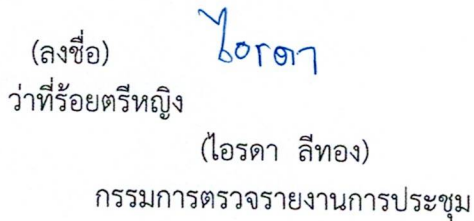 (ลงชื่อ) ไอรดา
ว่าที่ร้อยตรีหญิง
(ไอรดา ลีทอง)
กรรมการตรวจรายงานการประชุม